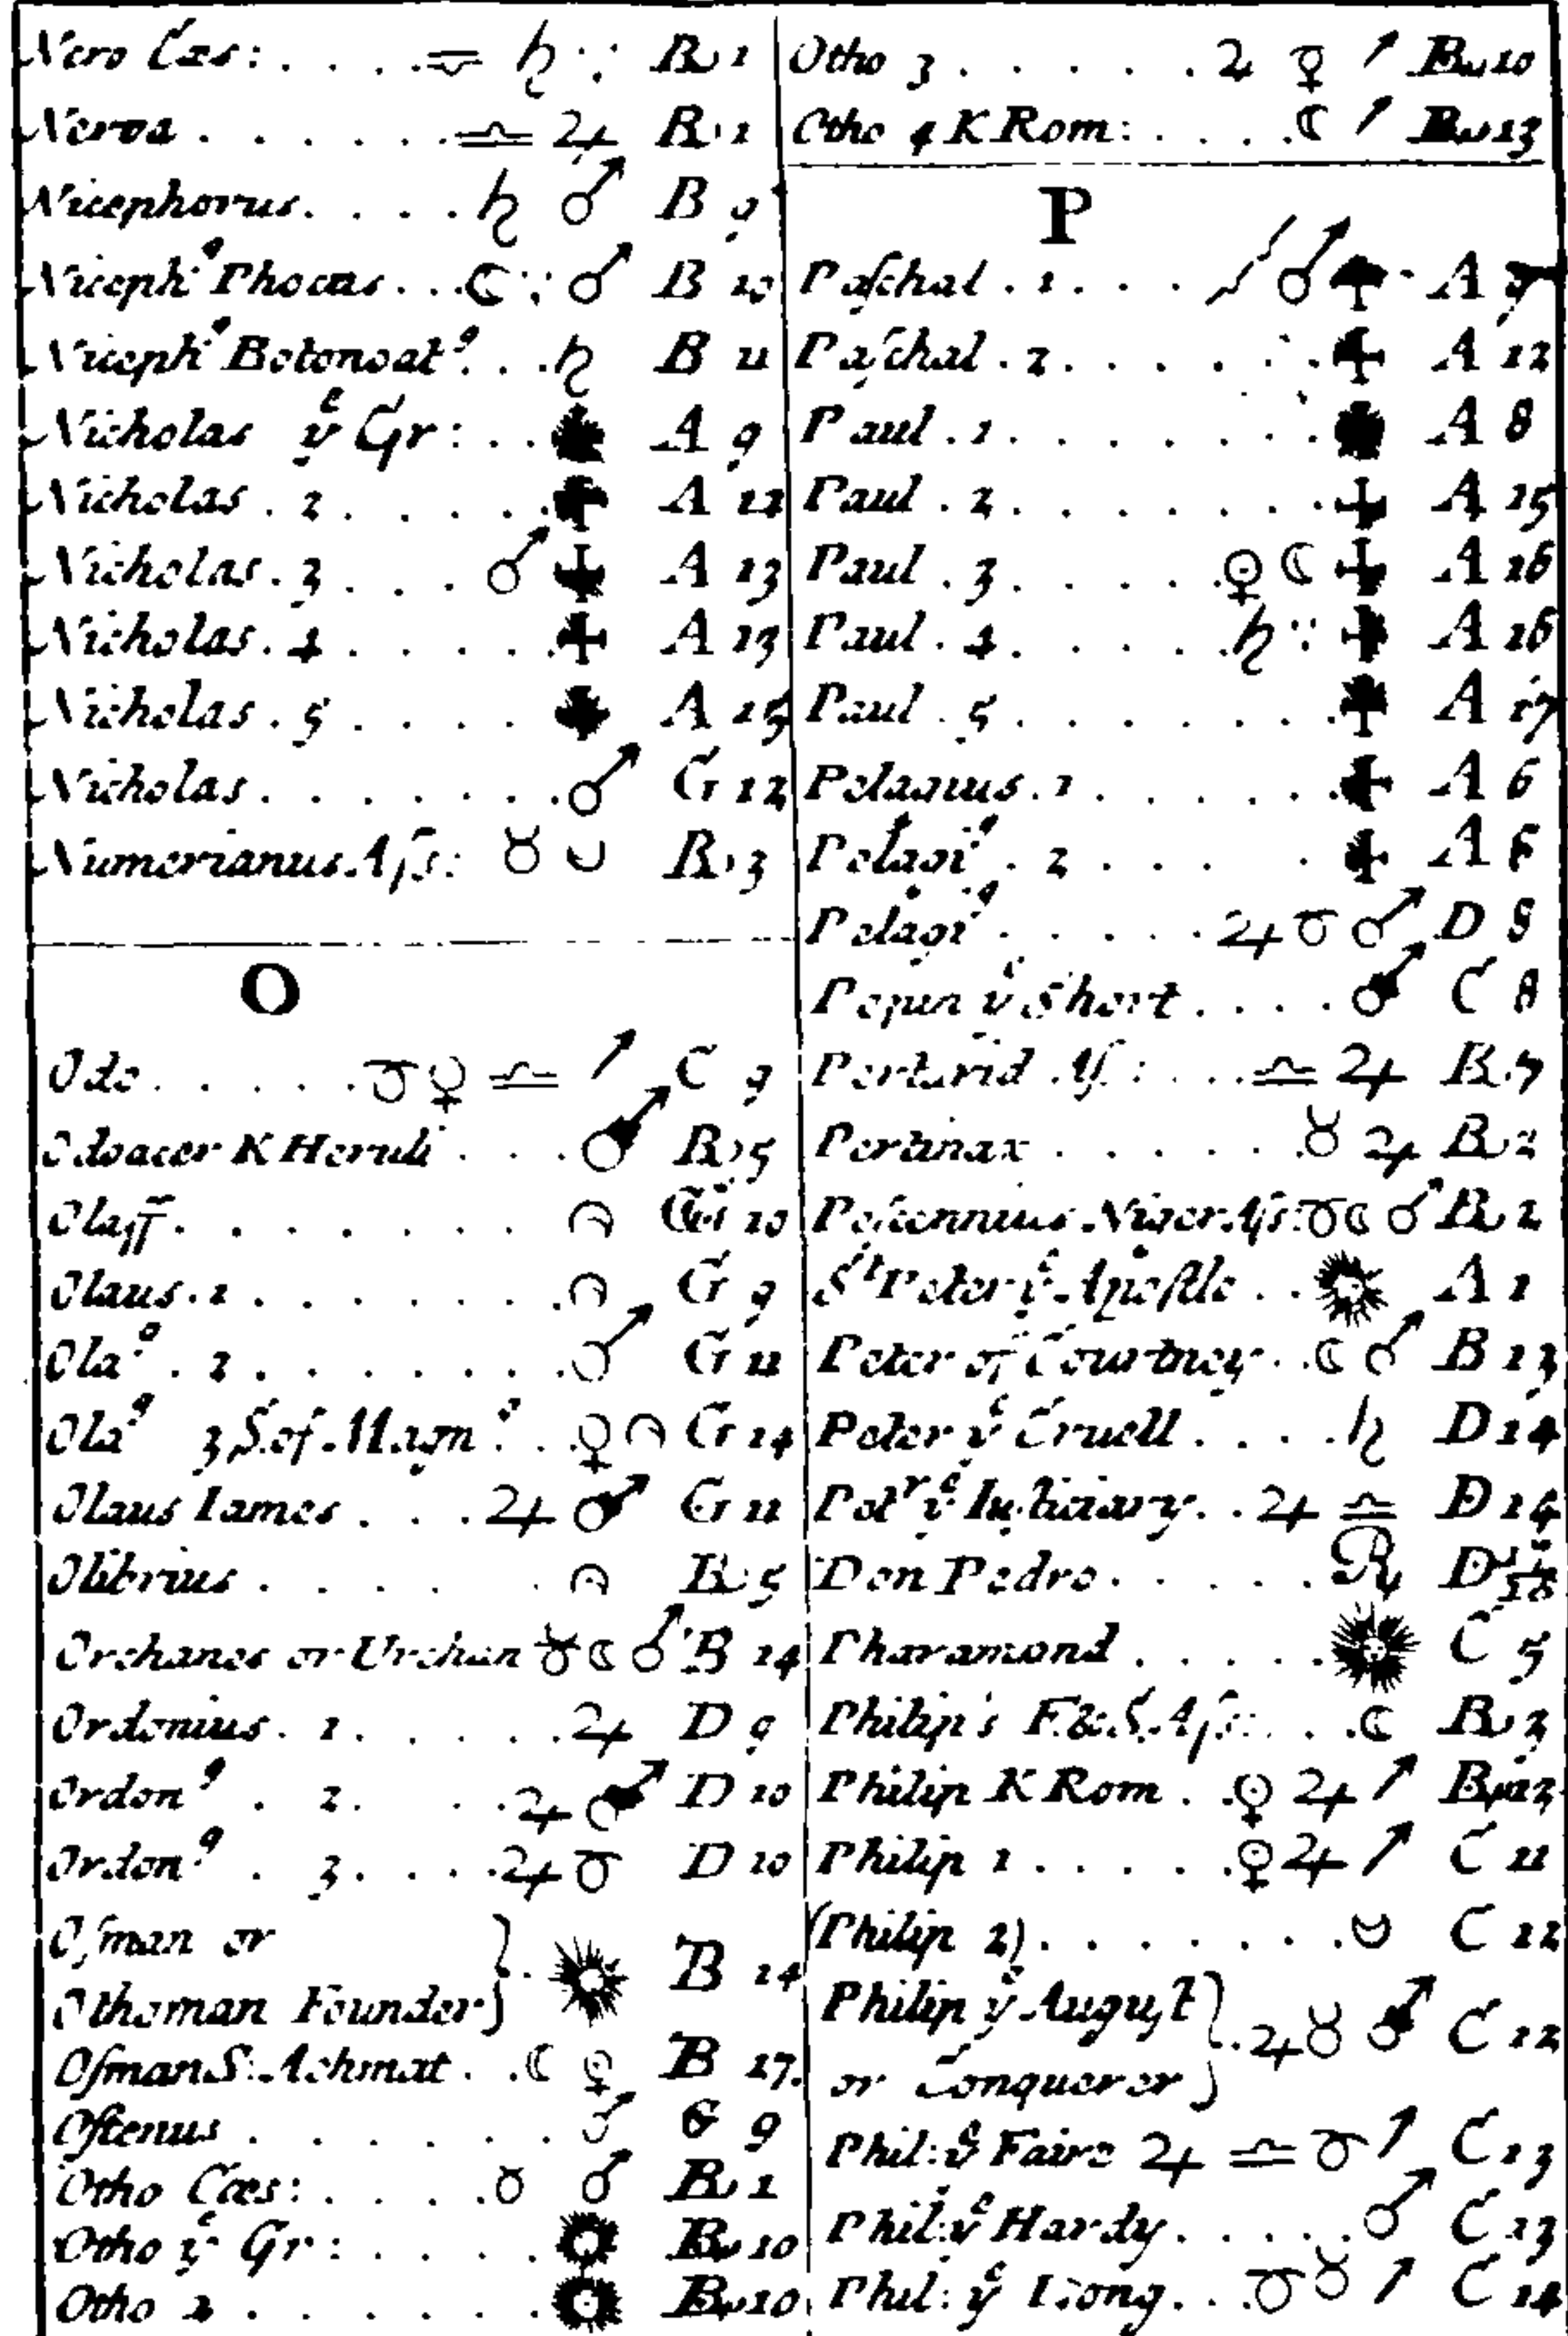 Nero Cæs: . . . . ♎ ♄ ∵ R 1
Nerva . . . . . . ♎ ♃ R 1
Nicephorus . . . . ♄ ♂ B 9
Niceph⁹ Phocas . . . ☾ ∵ ♂ B 10
Niceph⁹ Botoneat⁹ . . . ♄ B 11
Nicholas yᵉ Gr: . . A 9
Nicholas . 2 . . . . . A 11
Nicholas . 3 . . . ♂ A 13
Nicholas . 4 . . . . . A 13
Nicholas . 5 . . . . A 15
Nicholas . . . . . . . ♂ G 12
Numerianus Aſs: ♉ R 3
O
Odo . . . . . ♀ ♎ C 9
Odoacer K Heruli . . . ♂ R 5
Olaff . . . . . . . G 10
Olaus . 1 . . . . . . . G 9
Ola⁹ . 2 . . . . . . . ♂ G 11
Ola⁹ 3 S. of Magn⁹ . . ♀ G 14
Olaus Iames . . . ♃ ♂ G 11
Olibrius . . . . . R 5
Orchanes or Urchan ♉ ☾ ♂ B 14
Ordonius . 1 . . . . . ♃ D 9
Ordon⁹ . 2 . . . ♃ ♂ D 10
Ordon⁹ . 3 . . . . ♃ D 10
Oſman or
Othoman Founder } . . B 14
Oſman S: Achmat . . ☾ B 17.
Oſtenus . . . . . . . ♂ G 9
Otho Cæs: . . . . ♉ ♂ R 1
Otho yᵉ Gr: . . . . R 10
Otho 2 . . . . . . R 10
Otho 3 . . . . . . ♃ ♀ R 10
Otho 4 K Rom: . . . . ☾ R 13
P
Paſchal . 1 . . . . ♂ A 9
Paſchal . 2 . . . . . A 12
Paul . 1 . . . . . . . A 8
Paul . 2 . . . . . . . A 15
Paul . 3 . . . . . ☾ A 16
Paul . 4 . . . . . ♄ ∵ A 16
Paul . 5 . . . . . . . A 17
Pelagius . 1 . . . . . . A 6
Pelagi⁹ . 2 . . . . A 6
Pelagi⁹ . . . . . ♃ ♂ D 8
Pepin yᵉ Short . . . . ♂ C 8
Pertarid Aſ: . . . . ♎ ♃ R 7
Pertinax . . . . . . ♉ ♃ R 2
Peſcennius Niger Aſs: ☾ ♂ R 2
Sᵗ Peter yᵉ Apoſtle . . A 1
Peter of Courtney . . ☾ ♂ B 13
Peter yᵉ Cruell . . . . ♄ D 14
Petʳ yᵉ Iuſticiary . . ♃ ♎ D 14
Don Pedro . . . . . ℞ D
Pharamond . . . . . C 5
Philip's F. & S. Aſs: . . . ☾ R 3
Philip K Rom . . ♃ R 13
Philip 1 . . . . . ♃ C 11
(Philip 2) . . . . . . . C 12
Philip yᵉ Auguſt
or Conqueror } . ♃ ♉ ♂ C 12
Phil: yᵉ Faire ♃ ♎ C 13
Phil: yᵉ Hardy . . . . . ♂ C 13
Phil: yᵉ Long . . . ♉ C 14